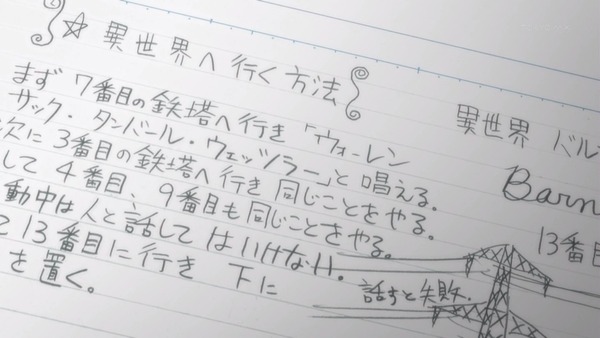 ☆異世界へ行く方法
まず7番目の鉄塔へ行き「ウォーレン
サック・タンバール・ウェッツラー」と唱える。
次に3番目の鉄塔へ行き同じことをやる。
して4番目、9番目も同じことをやる。
動中は人と話してはいけない。
13番目に行き 下に
を置く。
話すと失敗。
異世界 バル
Barn
13番目